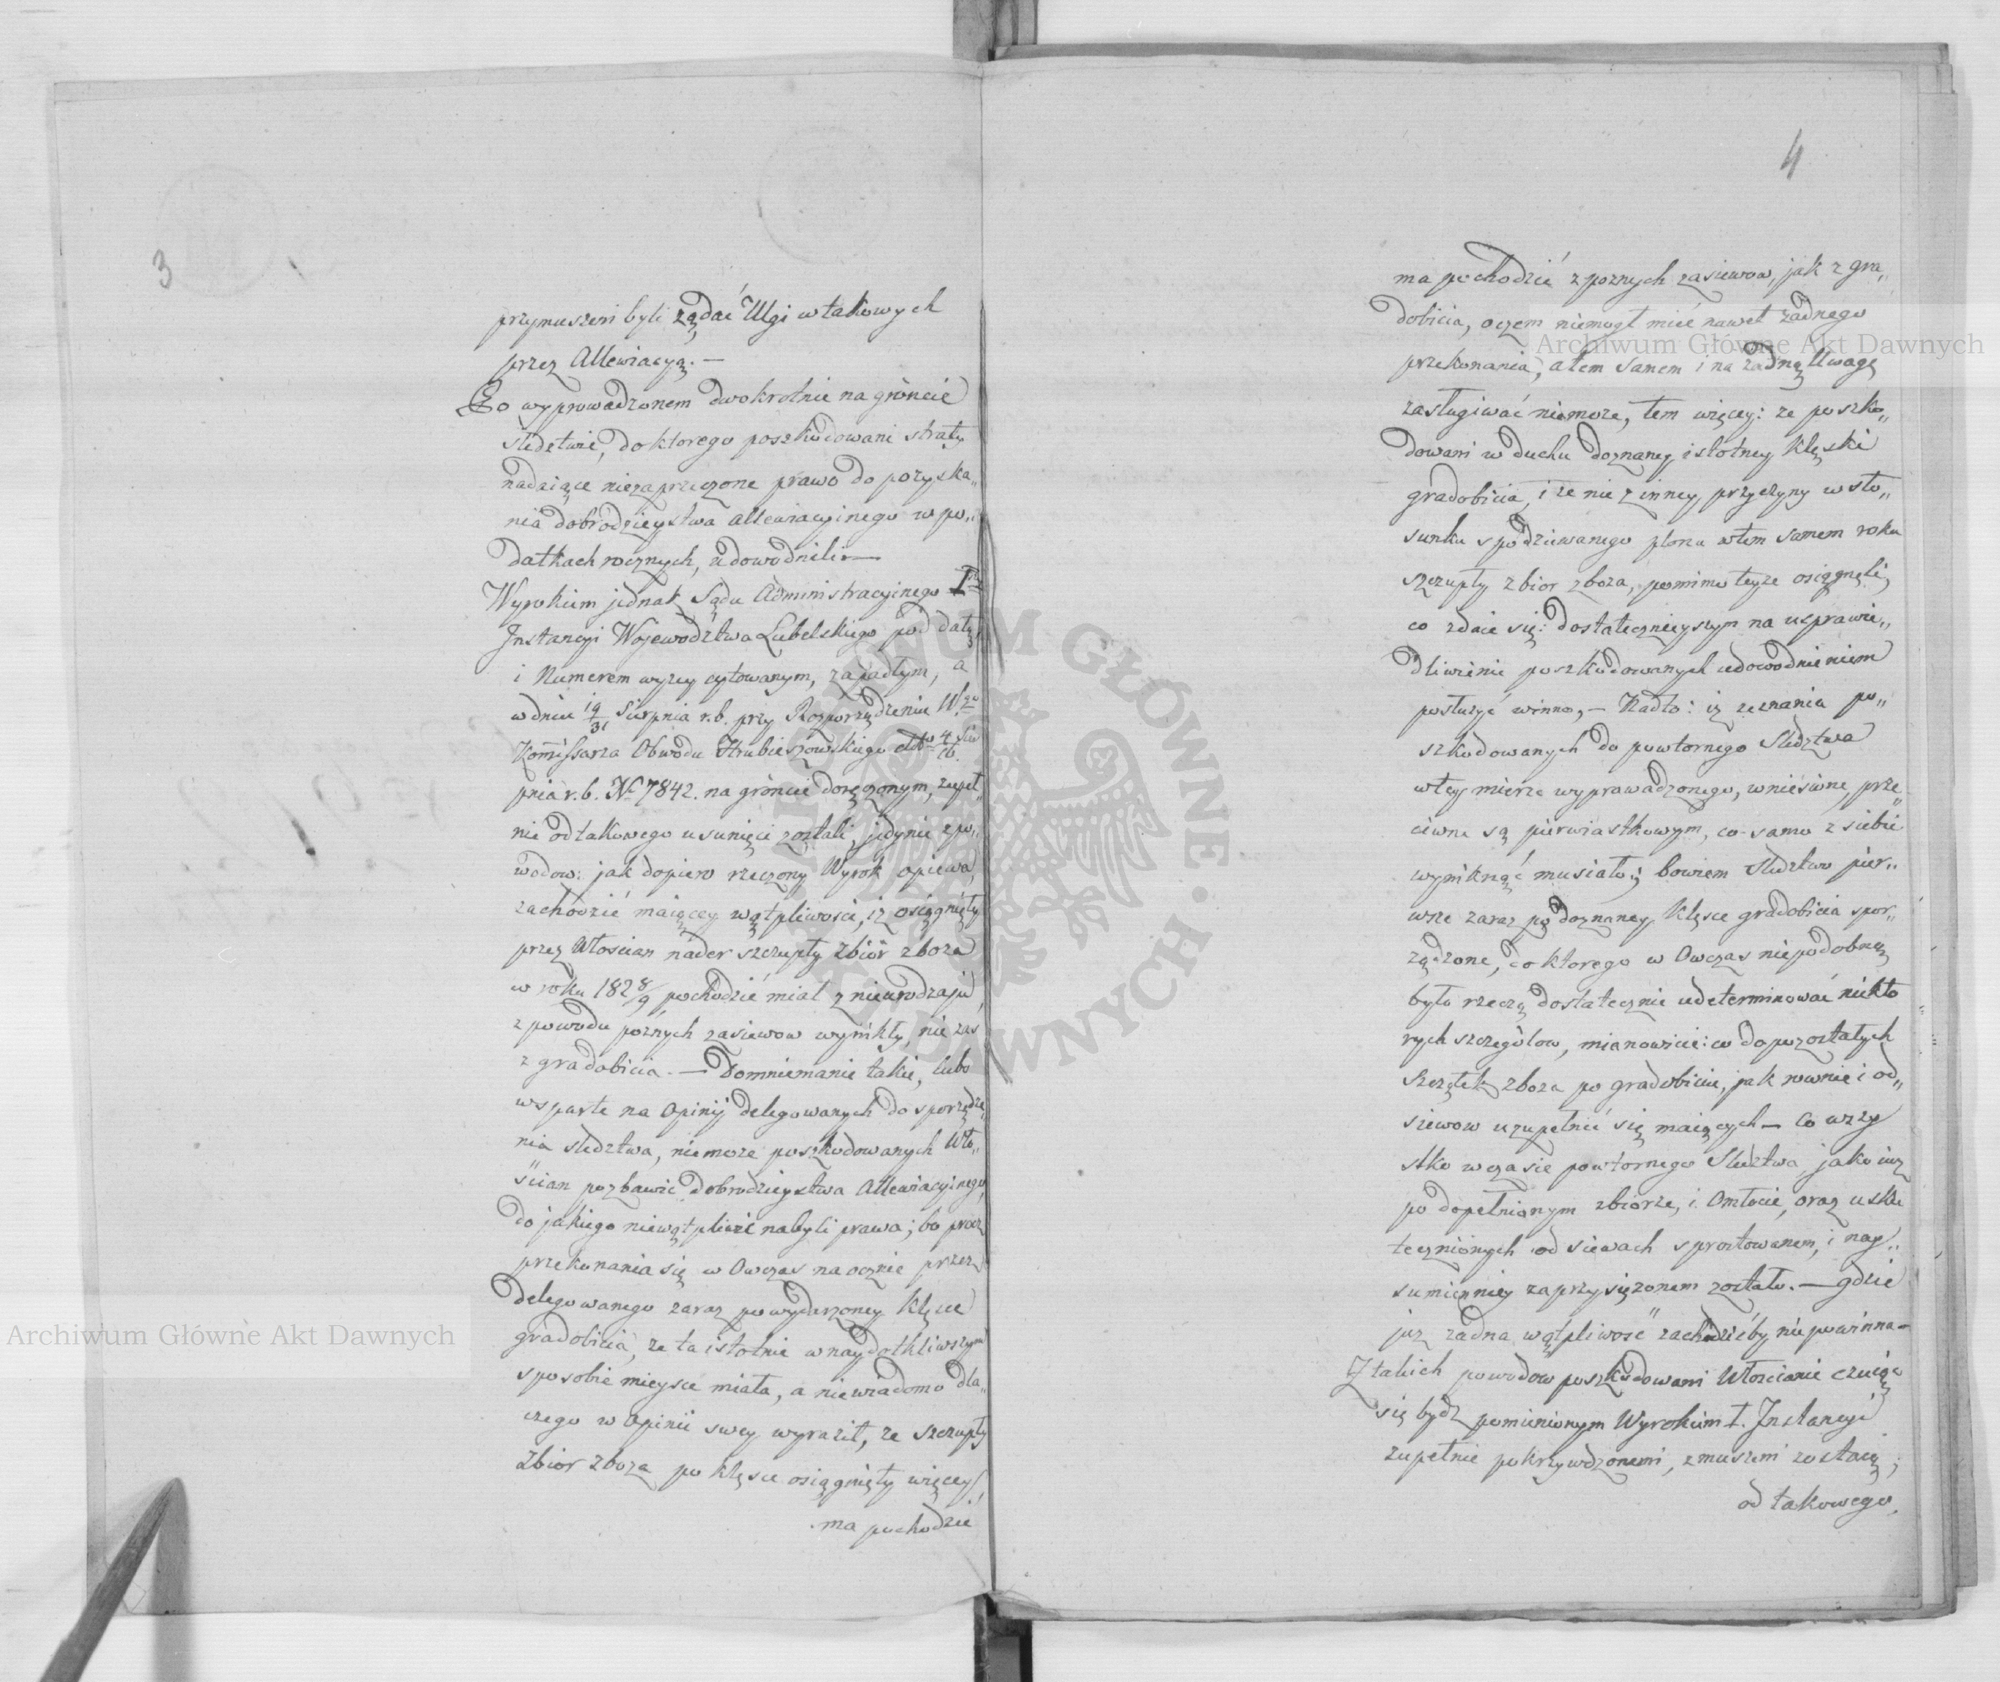 3
przymuszeni byli żądać Ulgi w takowych
przez Allewiacyą. —
Po wyprowadzonem dwokrotnie na gróncie
śledztwie, do ktorego poszkodowani straty
nadaiące niezaprzeczone prawo do pozyska„
nia dobrodzieystwa allewiacyinego w po„
datkach rocznych, udowodnili —
Wyrokiem jednak Sądu Administracyinego I
Instancyi Województwa Lubelskiego pod datą
i Numerem wyzey cytowanym, zapadłym, a
w dniu 19/31 Sierpnia r. b. przy Rozporządzeniu W
Kommissarza Obwodu Hrubieszowskiego 4/16 Sier
pnia r. b. Nr 7842. na gróncie doręczonym, zupeł„
nie od takowego usunięci zostali, jedynie z po„
wodow: jak dopiero rzeczony Wyrok opiewa,
zachodzić maiącey wątpliwości, iz osiągnięty
przez Włoscian nader szczupły zbiór zboza
w roku 1828/9 pochodzić miał z nieurodzaju,
z powodu póznych zasiewow wynikły, nie zas
z gradobicia. — Domniemanie takie, lubo
wsparte na Opinij delegowanych do sporządze„
nia sledztwa, niemoze poszkodowanych Wło„
ścian pozbawić dobrodzieystwa Allewiacyinego,
do jakiego niewątpliwie nabyli prawa; bo procz
przekonania się w Owczas naocznie przez
delegowanego zaraz po wydarzoney klęsce
gradobicia, ze ta istotnie w naydotkliwszym
sposobie mieysce miała, a niewiadomo dla„
czego w Opinii swey wyraził, ze szczupły
zbior zboza po klęsce osiągnięty więcey
ma pochodzić
4
ma pochodzić z poznych zasiewow, jak z gra„
dobicia, oczem niemogł mieć nawet żadnego
przekonania, a tem samem i na żadną Uwagę
zasługiwać niemoze, tem więcey: ze poszko„
dowani w duchu doznaney istotney klęski
gradobicia, i ze nie z inney przyczyny w sto„
sunku spodziewanego plonu w tem samem roku
szczupły zbior zboza, pomimo teyze osiągnęli,
co zdaie się: dostatecznieyszym na usprawie„
dliwienie poszkodowanych udowodnieniem
posłużyć winno, — Nadto: iz zeznania po„
szkodowanych do powtornego Sledztwa
w tey mierze wyprawadzonego, wniesione, prze„
ciwne są pierwiastkowym, co samo z siebie
wyniknąć musiało; bowiem sledztwo pier„
wsze zaraz po doznaney klęsce gradobicia spor„
ządzone, do ktorego w Owczas niepodobną
było rzeczą dostatecznie udeterminować niekto
rych szczegółow, mianowicie: co do pozostałych
Szczątek zboza po gradobiciu, jak rownie i od„
siewow uzupełnić się maiących — co wszy
stko w czasie powtornego Sledztwa jako iuz
po dopełnionym zbiorze, i Omłocie, oraz usku
tecznionych odsiewach sprostowanem, i nay„
sumienniey zaprzysiężonem zostało. — gdzie
juz zadna wątpliwość zachodzićby nie powinna —
Z takich powodow poszkodowani Włoscianie czuiąc
się bydz pomienionym Wyrokiem I. Instancyi
zupełnie pokrzywdzonemi, zmuszeni zostaią,
od takowego,
Archiwum Główne Akt Dawnych
Archiwum Główne Akt Dawnych
ARCHIWUM GŁÓWNE · AKT DAWNYCH ·